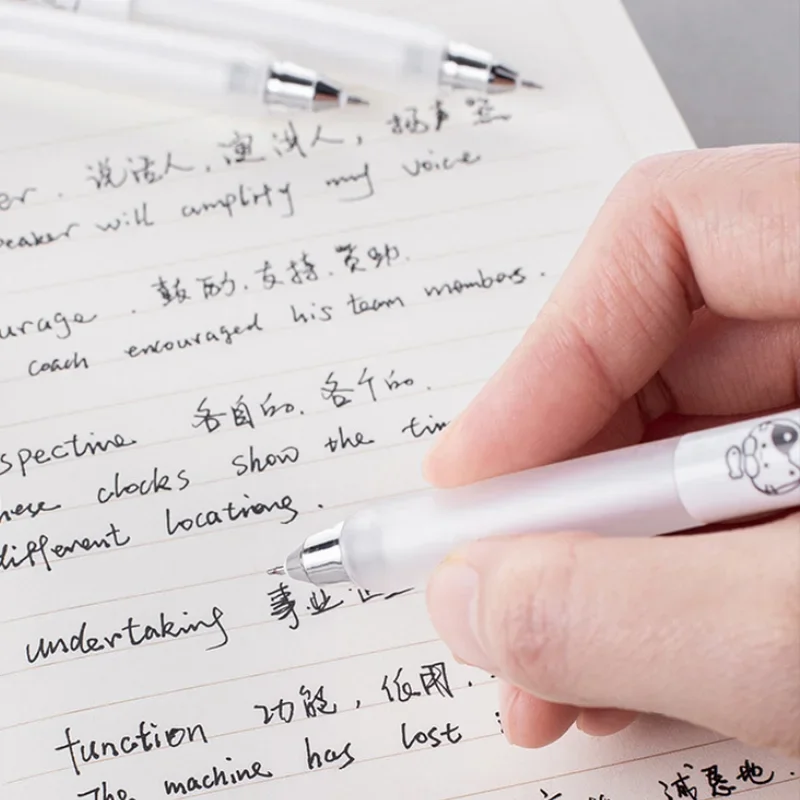 er. 说话人, 演讲人, 扬声器
peaker will amplify my voice
urage. 鼓励. 支持. 赞助.
coach encouraged his team members.
spective 各自的. 各个的.
hese clocks show the tim
different locations.
undertaking 事业
function 功能, 作用.
The machine has lost
诚恳地.